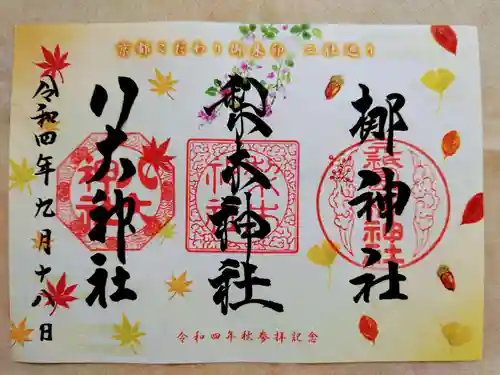 京都こだわり御朱印 三社巡り
梛神社
梨木神社
八大神社
令和四年九月十八日
令和四年秋参拝記念